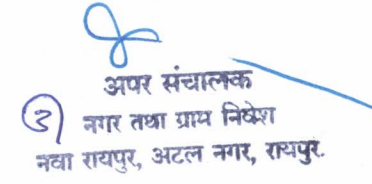 अपर संचालक
③ नगर तथा ग्राम निवेश
नवा रायपुर, अटल नगर, रायपुर.